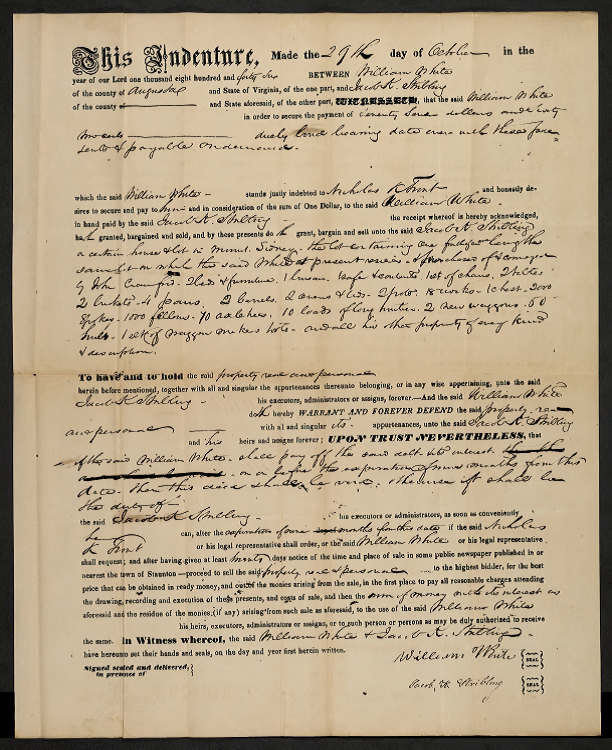 This Indenture, Made the 29th day of October in the
year of our Lord one thousand eight hundred and forty six BETWEEN William White
of the county of Augusta and State of Virginia, of the one part, and Jacob K. Stribling
of the county and State aforesaid, of the other part, WITNESSETH, that the said William White
in order to secure the payment of Seventy Seven dollars and
due by bond bearing date even with these pre
sents & payable on demand.
which the said William White stands justly indebted to Nicholas K Trout and honestly de-
sires to secure and pay to him and in consideration of the sum of One Dollar, to the said William White
in hand paid by the said Jacob K. Stribling the receipt whereof is hereby acknowledged,
hath granted, bargained and sold, and by these presents doth grant, bargain and sell unto the said Jacob K. Stribling
a certain house & lot in Mount Sidney. the lot containing one being the
same lot on which the said White at present resides & purchased & conveyed
by John Crawford. 2 beds & furniture. 1 bureau. 1 safe & contents. 1 set of chairs. 2 tables
2 buckets. 4 2 barrels. 2 ovens & lids. 2 pots. 1 chest. 2000
Spokes. 1000 fellows. 70 axletrees. 10 loads of 2 new waggons. 60
hubs. 1 set of waggon makers tools. and all his other property of every kind
& description.
To have and to hold the said property real and personal
herein before mentioned, together with all and singular the appurtenances thereunto belonging, or in any wise appertaining, unto the said
Jacob K Stribling his executors, administrators or assigns, forever.—And the said William White
doth hereby WARRANT AND FOREVER DEFEND the said property real
and personal with all and singular its appurtenances, unto the said Jacob K. Stribling
and his heirs and assigns forever; UPON TRUST NEVERTHELESS, that
if the said William White shall pay off the said debt & interest
on or before the expiration of months from this
date. then this deed shall be void. otherwise it shall be
the duty of
the said Jacob K Stribling his executors or administrators, as soon as conveniently
he can, after the expiration of months from this date if the said Nicholas
K Trout or his legal representative shall order, or the said William White or his legal representative
shall request; and after having given at least twenty days notice of the time and place of sale in some public newspaper published in or
nearest the town of Staunton—proceed to sell the said property real & personal to the highest bidder, for the best
price that can be obtained in ready money, and out of the monies arising from the sale, in the first place to pay all reasonable charges attending
the drawing, recording and execution of these presents, and costs of sale, and then the sum of money with its interest as
aforesaid and the residue of the monies (if any) arising from such sale as aforesaid, to the use of the said William White
his heirs, executors, administrators or assigns, or to such person or persons as may be duly authorized to receive
the same. In Witness whereof, the said William White & Jacob K. Stribling
have hereunto set their hands and seals, on the day and year first herein written.
Signed sealed and delivered,
in presence of
William White
Jacob, K Stribling